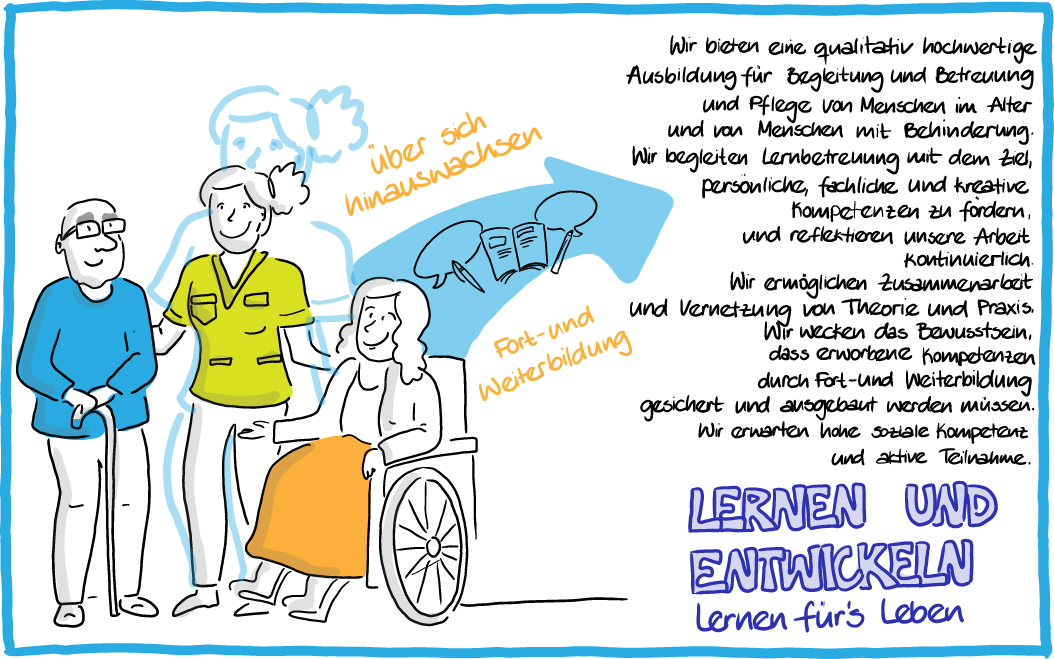 über sich
hinauswachsen
Fort- und
Weiterbildung
Wir bieten eine qualitativ hochwertige
Ausbildung für Begleitung und Betreuung
und Pflege von Menschen im Alter
und von Menschen mit Behinderung.
Wir begleiten Lernbetreuung mit dem Ziel,
persönliche, fachliche und kreative
Kompetenzen zu fördern,
und reflektieren unsere Arbeit
kontinuierlich.
Wir ermöglichen Zusammenarbeit
und Vernetzung von Theorie und Praxis.
Wir wecken das Bewusstsein,
dass erworbene Kompetenzen
durch Fort- und Weiterbildung
gesichert und ausgebaut werden müssen.
Wir erwarten hohe soziale Kompetenz
und aktive Teilnahme.
LERNEN UND
ENTWICKELN
Lernen für's Leben